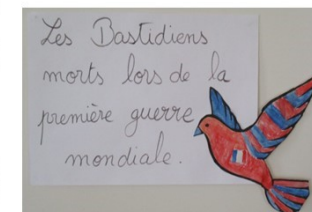 Les Bastidiens
morts lors de la
première guerre
mondiale.